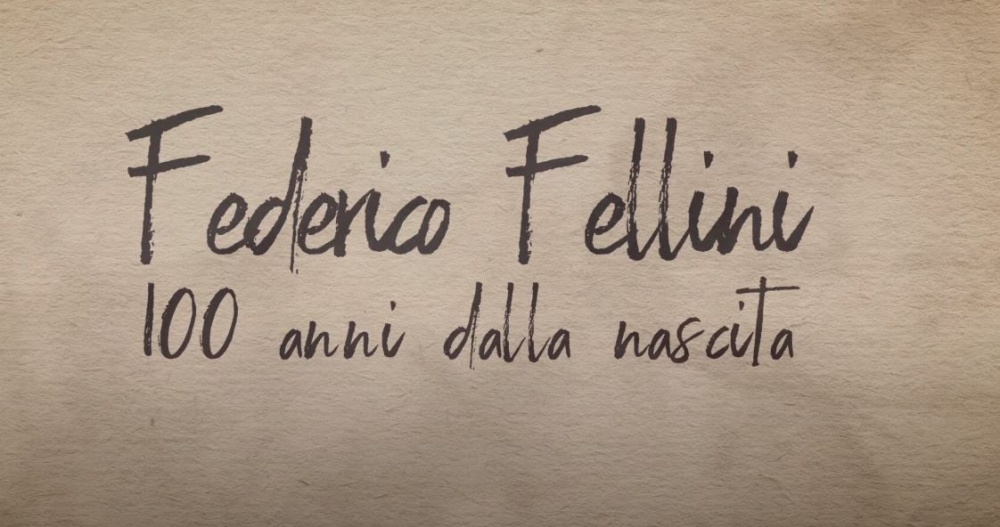 Federico Fellini
100 anni dalla nascita